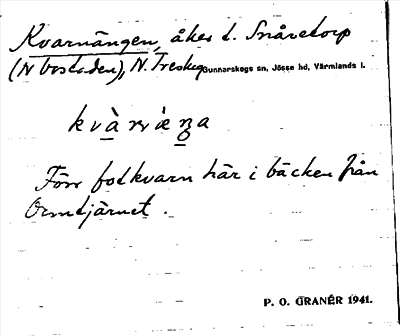 Kvarnängen, åker t. Snåretorp
(N bostaden), N. Treskog Gunnarskogs sn, Jösse hd, Värmlands l.
kvàrnèŋa
Förr fotkvarn här i bäcken från
Ormtjärnet.
P. O. GRANÉR 1941.